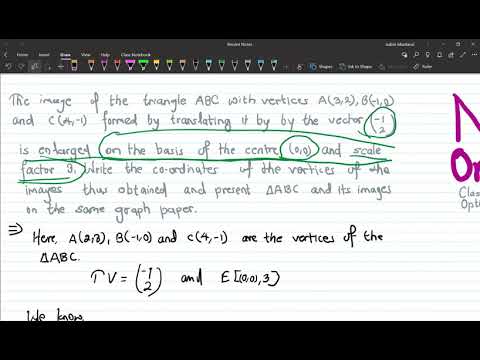 File Home Insert Draw View Help Class Notebook
The image of the triangle ABC with vertices A(3,2), B(-1,0)
and C(4,-1) formed by translating it by by the vector (-1 2)
is enlarged on the basis of the centre (0,0) and scale
factor 3. Write the co-ordinates of the vertices of the
images thus obtained and present ΔABC and its images
on the same graph paper.
⇒) Here, A(3,2), B(-1,0) and C(4,-1) are the vertices of the
ΔABC.
TV = (-1 2) and E[(0,0),3]
We know,
N
Op
Clas
Opti